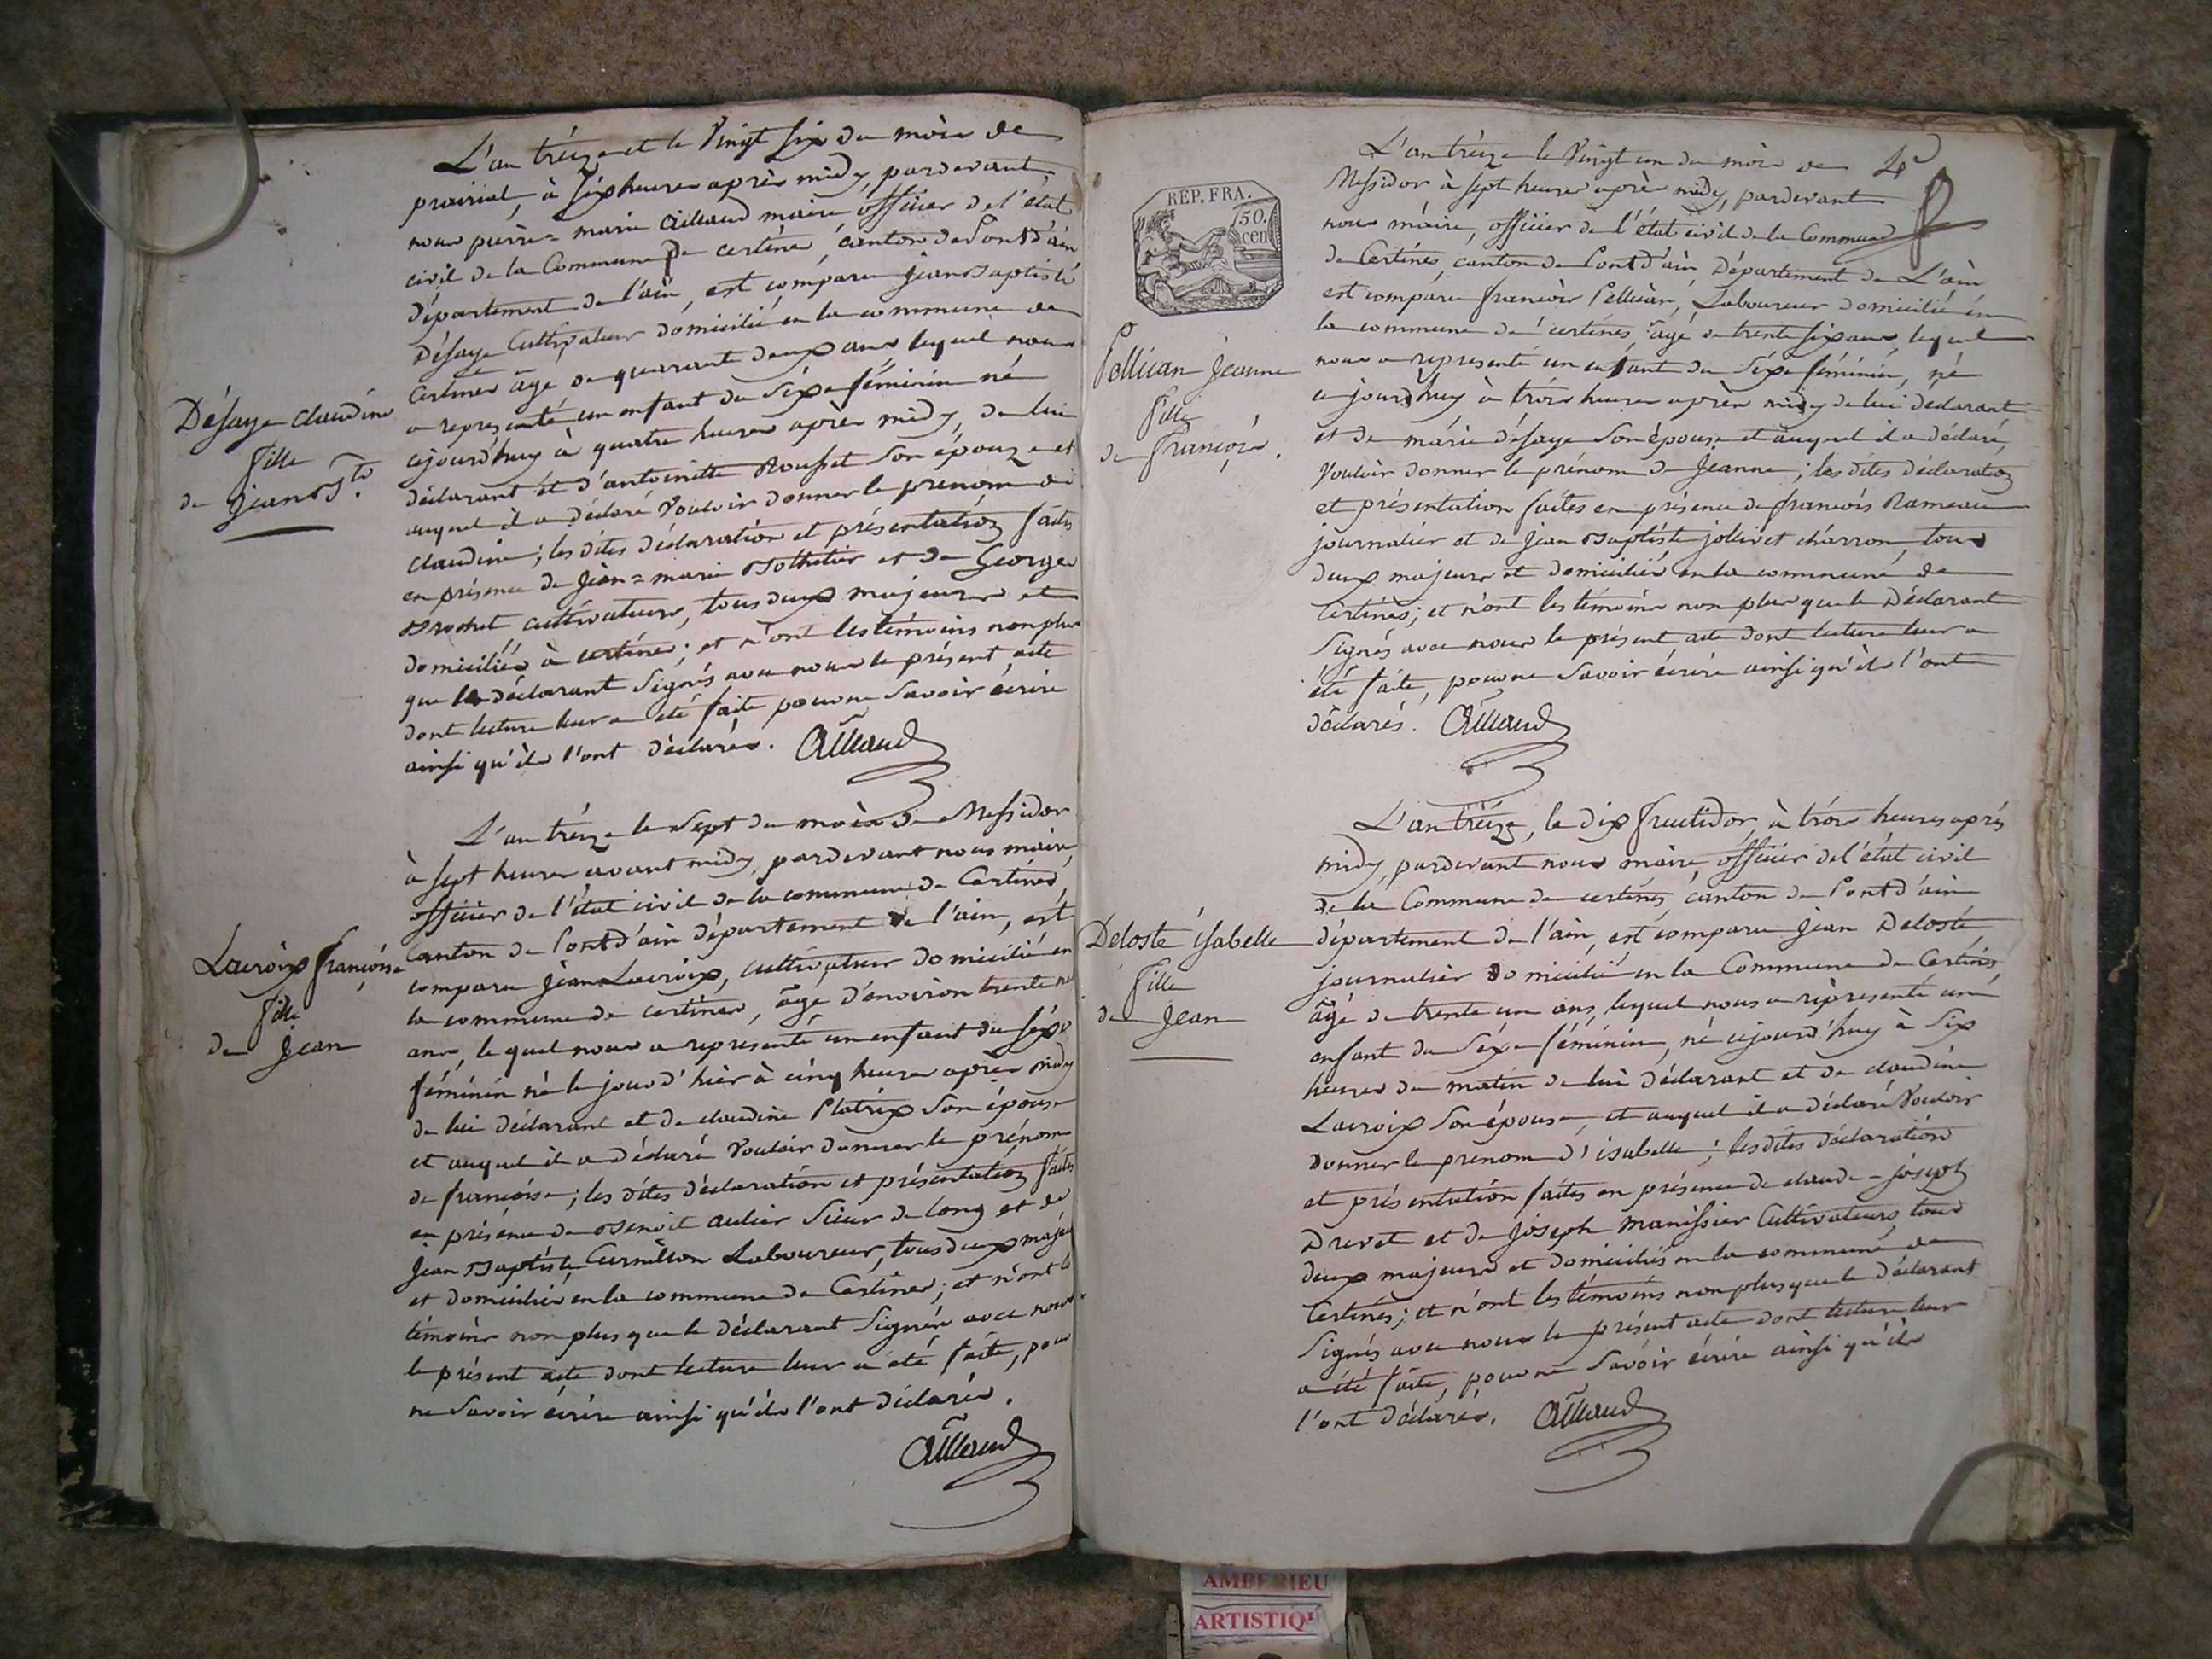 L'an tréize et le Vingt six du mois de
prairial, à six heures après midy, pardevant
nous pierre = marie Aillaud maire officier de l'état
civil de la Commune de certines, canton de Pont d'ain
département de l'ain, est comparu jean Baptiste
Désaye Cultivateur domicilié en la commune de
Certines âgé de quarante deux ans lequel nous
a représenté un enfant du Séxe féminin né
cejourd'huy à quatre heures après midy, de lui
déclarant et d'antoinette Rousset son épouze et
auquel il a déclaré Vouloir donner le prénom de
claudine; les dites déclaration et présentation faites
en présence de Jean = marie Bothelier et de George
Brochet cultivateurs, tous deux majeurs et
domiciliés à certines; et n'ont les témoins non plus
que le déclarant Signés avec nous le présent acte
dont lecture leur a été faite pour ne Savoir écrire
ainsi qu'ils l'ont déclarés. Aillaud
Désaye claudine
fille
de Jean Bte.
L'an tréize le Sept du mois de Messidor
à sept heures avant midy, pardevant nous maire,
officier de l'état civil de la commune de Certines,
Canton de Pont d'ain département de l'ain, est
comparu Jean Lacroix, cultivateur domicilié en
la commune de certines, âgé d'environ trente
ans, le quel nous a représenté un enfant du séxe
féminin né le jour d'hier à cinq heures après midy
de lui déclarant et de claudine Platrix Son épouse
et auquel il a déclaré Vouloir donner le prénom
de françoise; les dites déclaration et présentation faites
en présence de Benoit aulier Sieur de long et de
Jean Baptiste Curnillon Laboureur, tous deux majeurs
et domiciliés en la commune de Certines; et n'ont les
témoins non plus que le déclarant Signés avec nous
le présent acte dont lecture leur a été faite, pour
ne Savoir écrire ainsi qu'ils l'ont déclarés.
Aillaud
Lacroix françoise
fille
de Jean
4e
L'an tréize le Vingt un du mois de
Messidor à sept heures après midy, pardevant
nous maire, officier de l'état civil de la Commune
de Certines, canton de Pont d'ain Département de L'ain
est comparu françois Pellican, Laboureur domicilié en
la commune de certines, âgé de trente six ans, lequel
nous a représenté un enfant du Séxe féminin, né
cejourd'huy à trois heures après midy de lui déclarant
et de marie désaye Son épouse et auquel il a déclaré
Vouloir donner le prénom de Jeanne; les dites déclaration
et présentation faites en présence de françois Rameau
journalier et de Jean Baptiste jollivet charron, tous
deux majeurs et domiciliés en la commune de
Certines; et n'ont les témoins non plus que le Déclarant
Signés avec nous le présent acte dont lecture leur a
été faite, pour ne Savoir écrire ainsi qu'ils l'ont
déclarés. Aillaud
REP. FRA.
50.
cen
Pellican Jeanne
fille
de françois.
L'an tréize, le dix fructidor, à trois heures après
midy, pardevant nous maire, officier de l'état civil
de la Commune de certines, canton de Pont d'ain
département de l'ain, est comparu Jean Deloste
journalier domicilié en la Commune de Certines,
âgé de trente un ans, lequel nous a représenté un
enfant du Séxe féminin, né cejourd'huy à Six
heures du matin de lui déclarant et de claudine
Lacroix Son épouse, et auquel il a déclaré Vouloir
donner le prénom d'isabelle; les dites déclaration
et présentation faites en présence de claude = joseph
Drevet et de Joseph Manissier Cultivateurs, tous
deux majeurs et domiciliés en la commune de
Certines; et n'ont les témoins non plus que le déclarant
Signés avec nous le présent acte dont lecture leur
a été faite, pour ne Savoir écrire ainsi qu'ils
l'ont déclarés. Aillaud
Deloste isabelle
fille
de Jean
AMBERIEU
ARTISTIQ